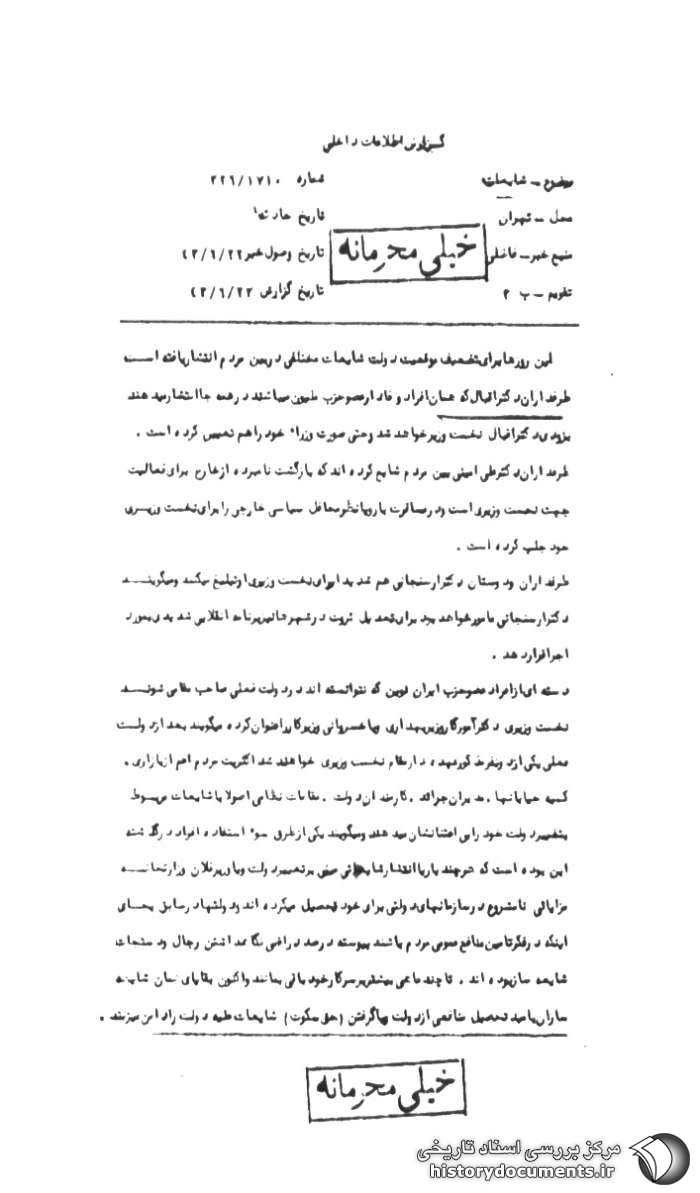 گزارش اطلاعات داخلی
موضوع - شایعات شماره ۲۲۶/۱۷۱۰
محل - تهران تاریخ حادثه
خیلی محرمانه
منبع خبر - فاضلی تاریخ وصول خبر ۴۳/۶/۲۲
تقویم - ب ۲ تاریخ گزارش ۴۳/۶/۲۲
این روزها برای تضعیف موقعیت دولت شایعات مختلفی در بین مردم انتشار یافته است
طرفداران دکتر اقبال که همان افراد وفادار عضو حزب ملیون میباشند در همه جا انتشار میدهند
بزودی دکتر اقبال نخست وزیر خواهد شد وحتی صورت وزراء خود را هم تعیین کرده است .
طرفداران دکتر علی امینی بین مردم شایع کرده اند که بازگشت نامبرده از خارج برای فعالیت
جهت نخست وزیری است ودر مسافرت باروپا نظر محافل سیاسی خارجی را برای نخست وزیری
خود جلب کرده است .
طرفداران ودوستان دکتر ارسنجانی هم شدیدا برای نخست وزیری او تبلیغ میکنند ومیگویند
دکتر ارسنجانی مامور خواهد بود برای تعدیل ثروت در شهرها نیز برنامه انقلابی شدیدی بمورد
اجرا قرار دهد .
دسته ای از افراد عضو حزب ایران نوین که نتوانسته اند در دولت فعلی صاحب مقامی شوند
نخست وزیری دکتر آموزگار وزیر بهداری ویا خسروانی وزیر کار را عنوان کرده میگویند بعد از دولت
فعلی یکی از دونفر مذکور عهده دار مقام نخست وزیری خواهند شد اکثریت مردم اعم از بازاری .
کسبه خیابانها . مدیران جرائد . کارمندان دولت . مقامات نظامی اصولا باشایعات مربوط
بتغییر دولت خود را بی اعتنا نشان میدهند ومیگویند یکی از طرق سوء استفاده افراد در گذشته
این بوده است که هرچند بار با انتشار شایعاتی مبنی بر تغییر دولت ویا وزیر فلان وزارتخانه
مزایائی نامشروع در سازمانهای دولتی برای خود تحصیل میکرده اند ودولتها در سابق بجای
اینکه در فکر تامین منافع عمومی مردم باشند پیوسته درصدد راضی نگاهداشتن رجال ودستجات
شایعه ساز بوده اند . تا چند ماهی بیشتر بر سر کار خود باقی بمانند واکنون بقایای همان شایعه
سازان بامید تحصیل منافعی از دولت ویا گرفتن (حق سکوت) شایعات علیه دولت را دامن میزنند .
خیلی محرمانه
مرکز بررسی اسناد تاریخی
historydocuments.ir